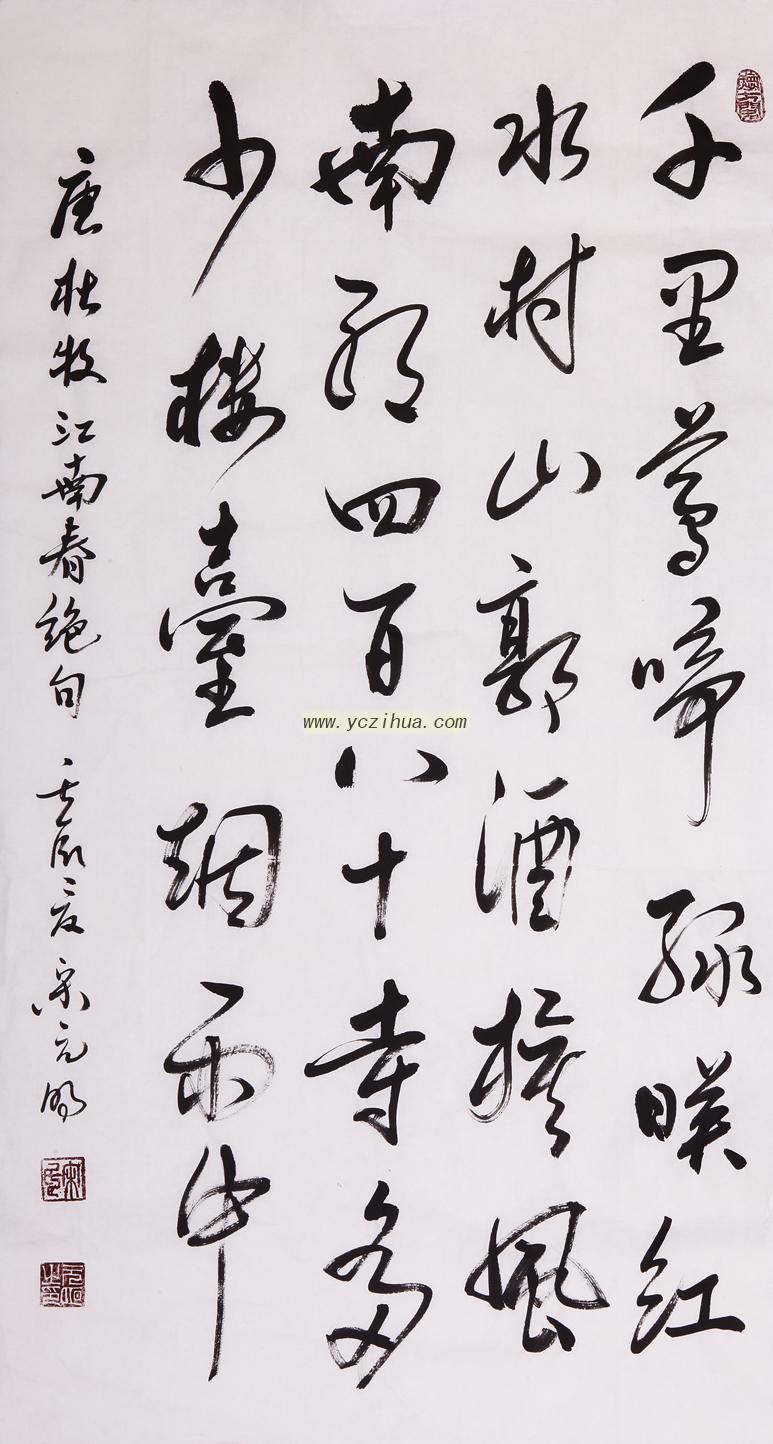 千里鶯啼綠暎紅
水村山郭酒旗風
南朝四百八十寺多
少樓臺烟雨中
唐杜牧江南春絕句 壬辰夏宋元明
www.yczihua.com